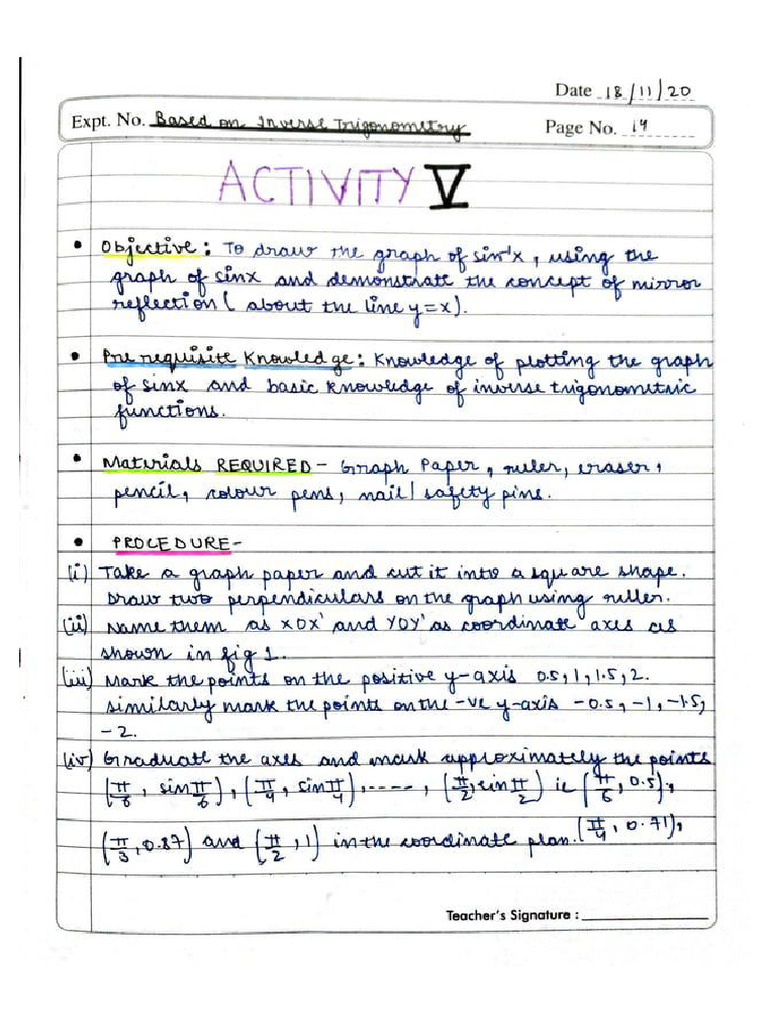 Date 18/11/20
Expt. No. Based on Inverse Trigonometry
Page No. 14
ACTIVITY V
• Objective: To draw the graph of sin⁻¹x, using the
graph of sinx and demonstrate the concept of mirror
reflection (about the line y=x).
• Pre requisite Knowledge: Knowledge of plotting the graph
of sinx and basic knowledge of inverse trigonometric
functions.
• Materials REQUIRED - Graph Paper, ruler, eraser,
pencil, colour pens, nail/safety pins.
• PROCEDURE-
(i) Take a graph paper and cut it into a square shape.
Draw two perpendiculars on the graph using ruller.
(ii) Name them as XOX' and YOY' as coordinate axes as
shown in fig 1.
(iii) Mark the points on the positive y-axis 0.5, 1, 1.5, 2.
similarly mark the points on the -ve y-axis -0.5, -1, -1.5,
-2.
(iv) Graduate the axes and mark approximately the points
(π/6, sin π/6), (π/4, sin π/4), ----, (π/2, sin π/2) ie (π/6, 0.5),
(π/3, 0.87) and (π/2, 1) in the coordinate plan. (π/4, 0.71),
Teacher's Signature :